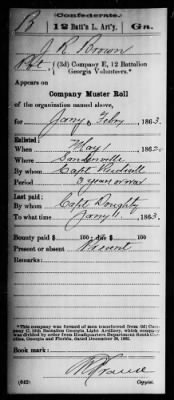 Confederate.
B 12 Batt'n L. Art'y. Ga.
J. R. Brown
Pvt, (3d) Company E, 12 Battalion
Georgia Volunteers.*
Appears on
Company Muster Roll
of the organization named above,
for Jany & Feby, 1863.
Enlisted:
When May 1, 1862.
Where Sandersville
By whom Capt Rudisill
Period 3 years or war
Last paid:
By whom Capt. Doughty
To what time Jany 1, 1863.
Bounty paid $ 100; due $ 100
Present or absent Present
Remarks:
*This company was formed of men transferred from (2d) Company C, 12th Battalion Georgia Light Artillery, which company was divided by order from Headquarters Department South Carolina, Georgia and Florida, dated December 28, 1862.
Book mark:
(642) Copyist.